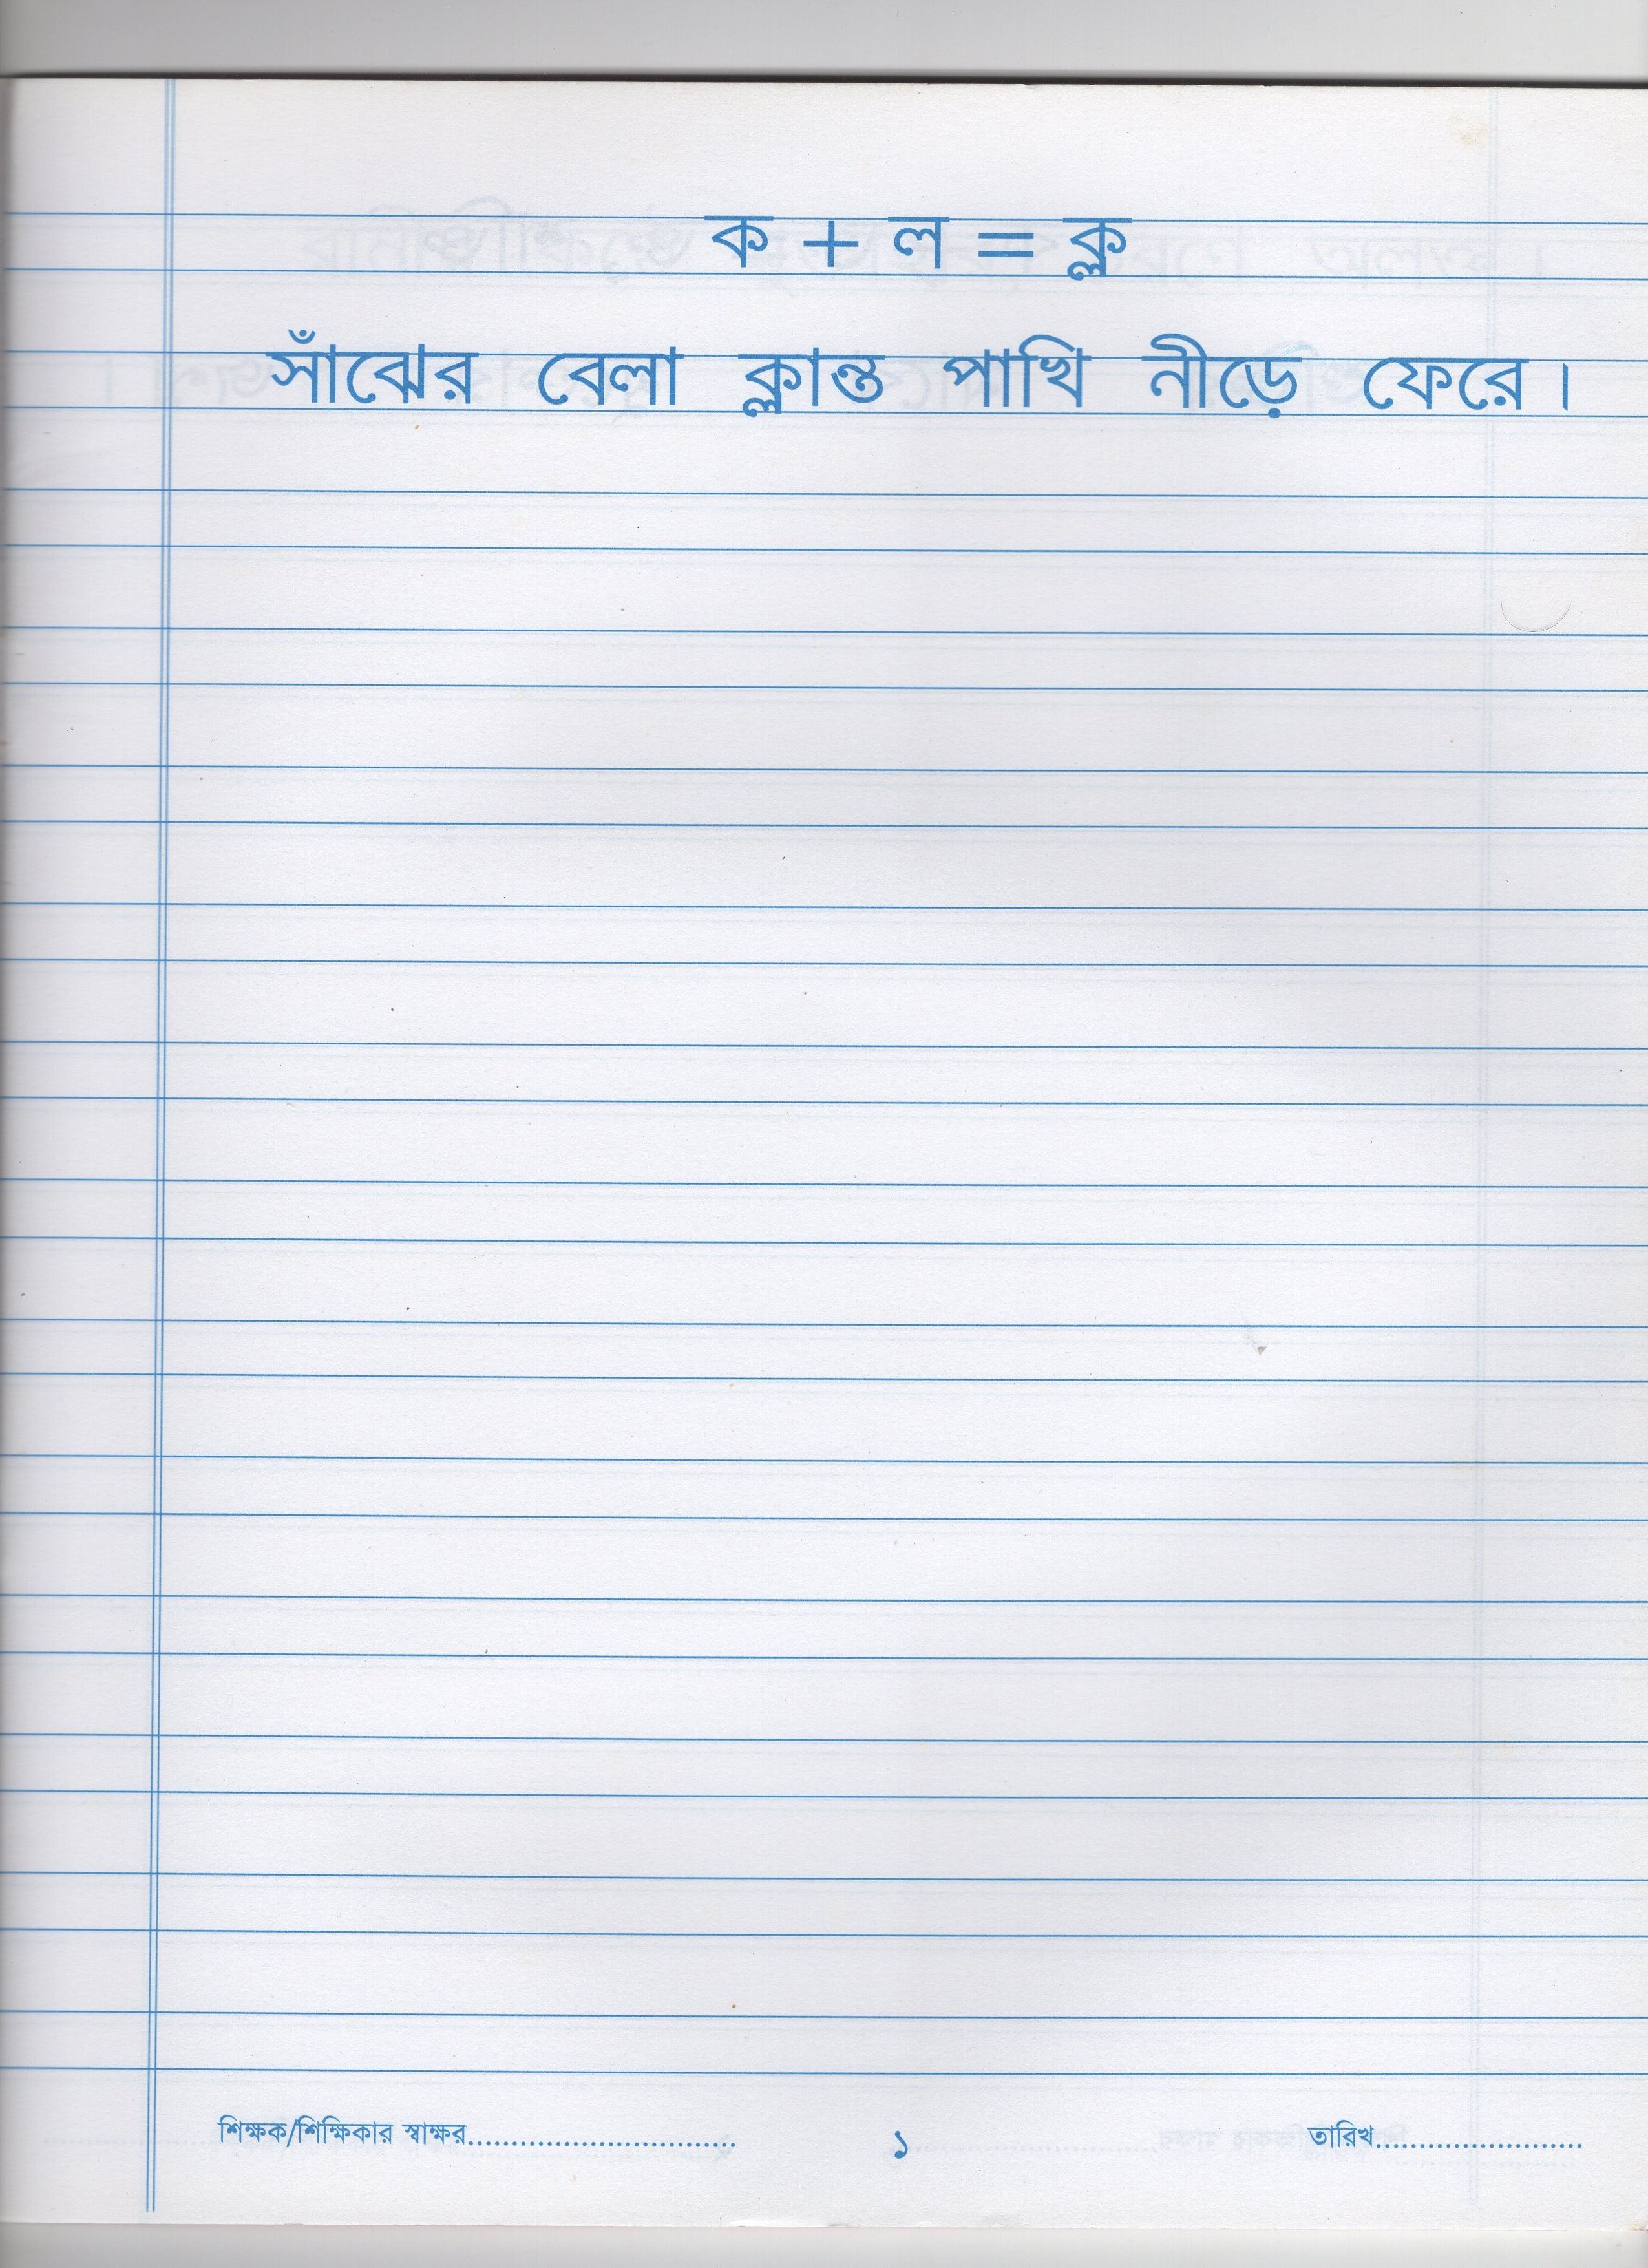 ক + ল = ক্ল
সাঁঝের বেলা ক্লান্ত পাখি নীড়ে ফেরে।
শিক্ষক/শিক্ষিকার স্বাক্ষর.............................. ১ তারিখ.......................